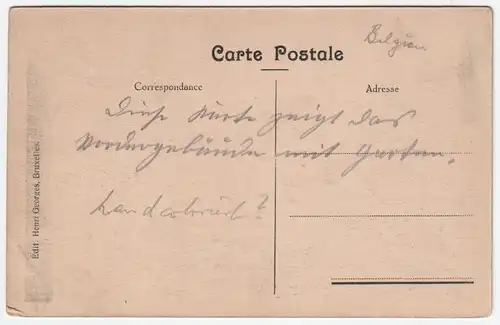 Belgien
Carte Postale
Correspondance
Adresse
Diese Karte zeigt das
Vordergebäude mit Garten.
handcoloriert?
Edit. Henri Georges, Bruxelles.